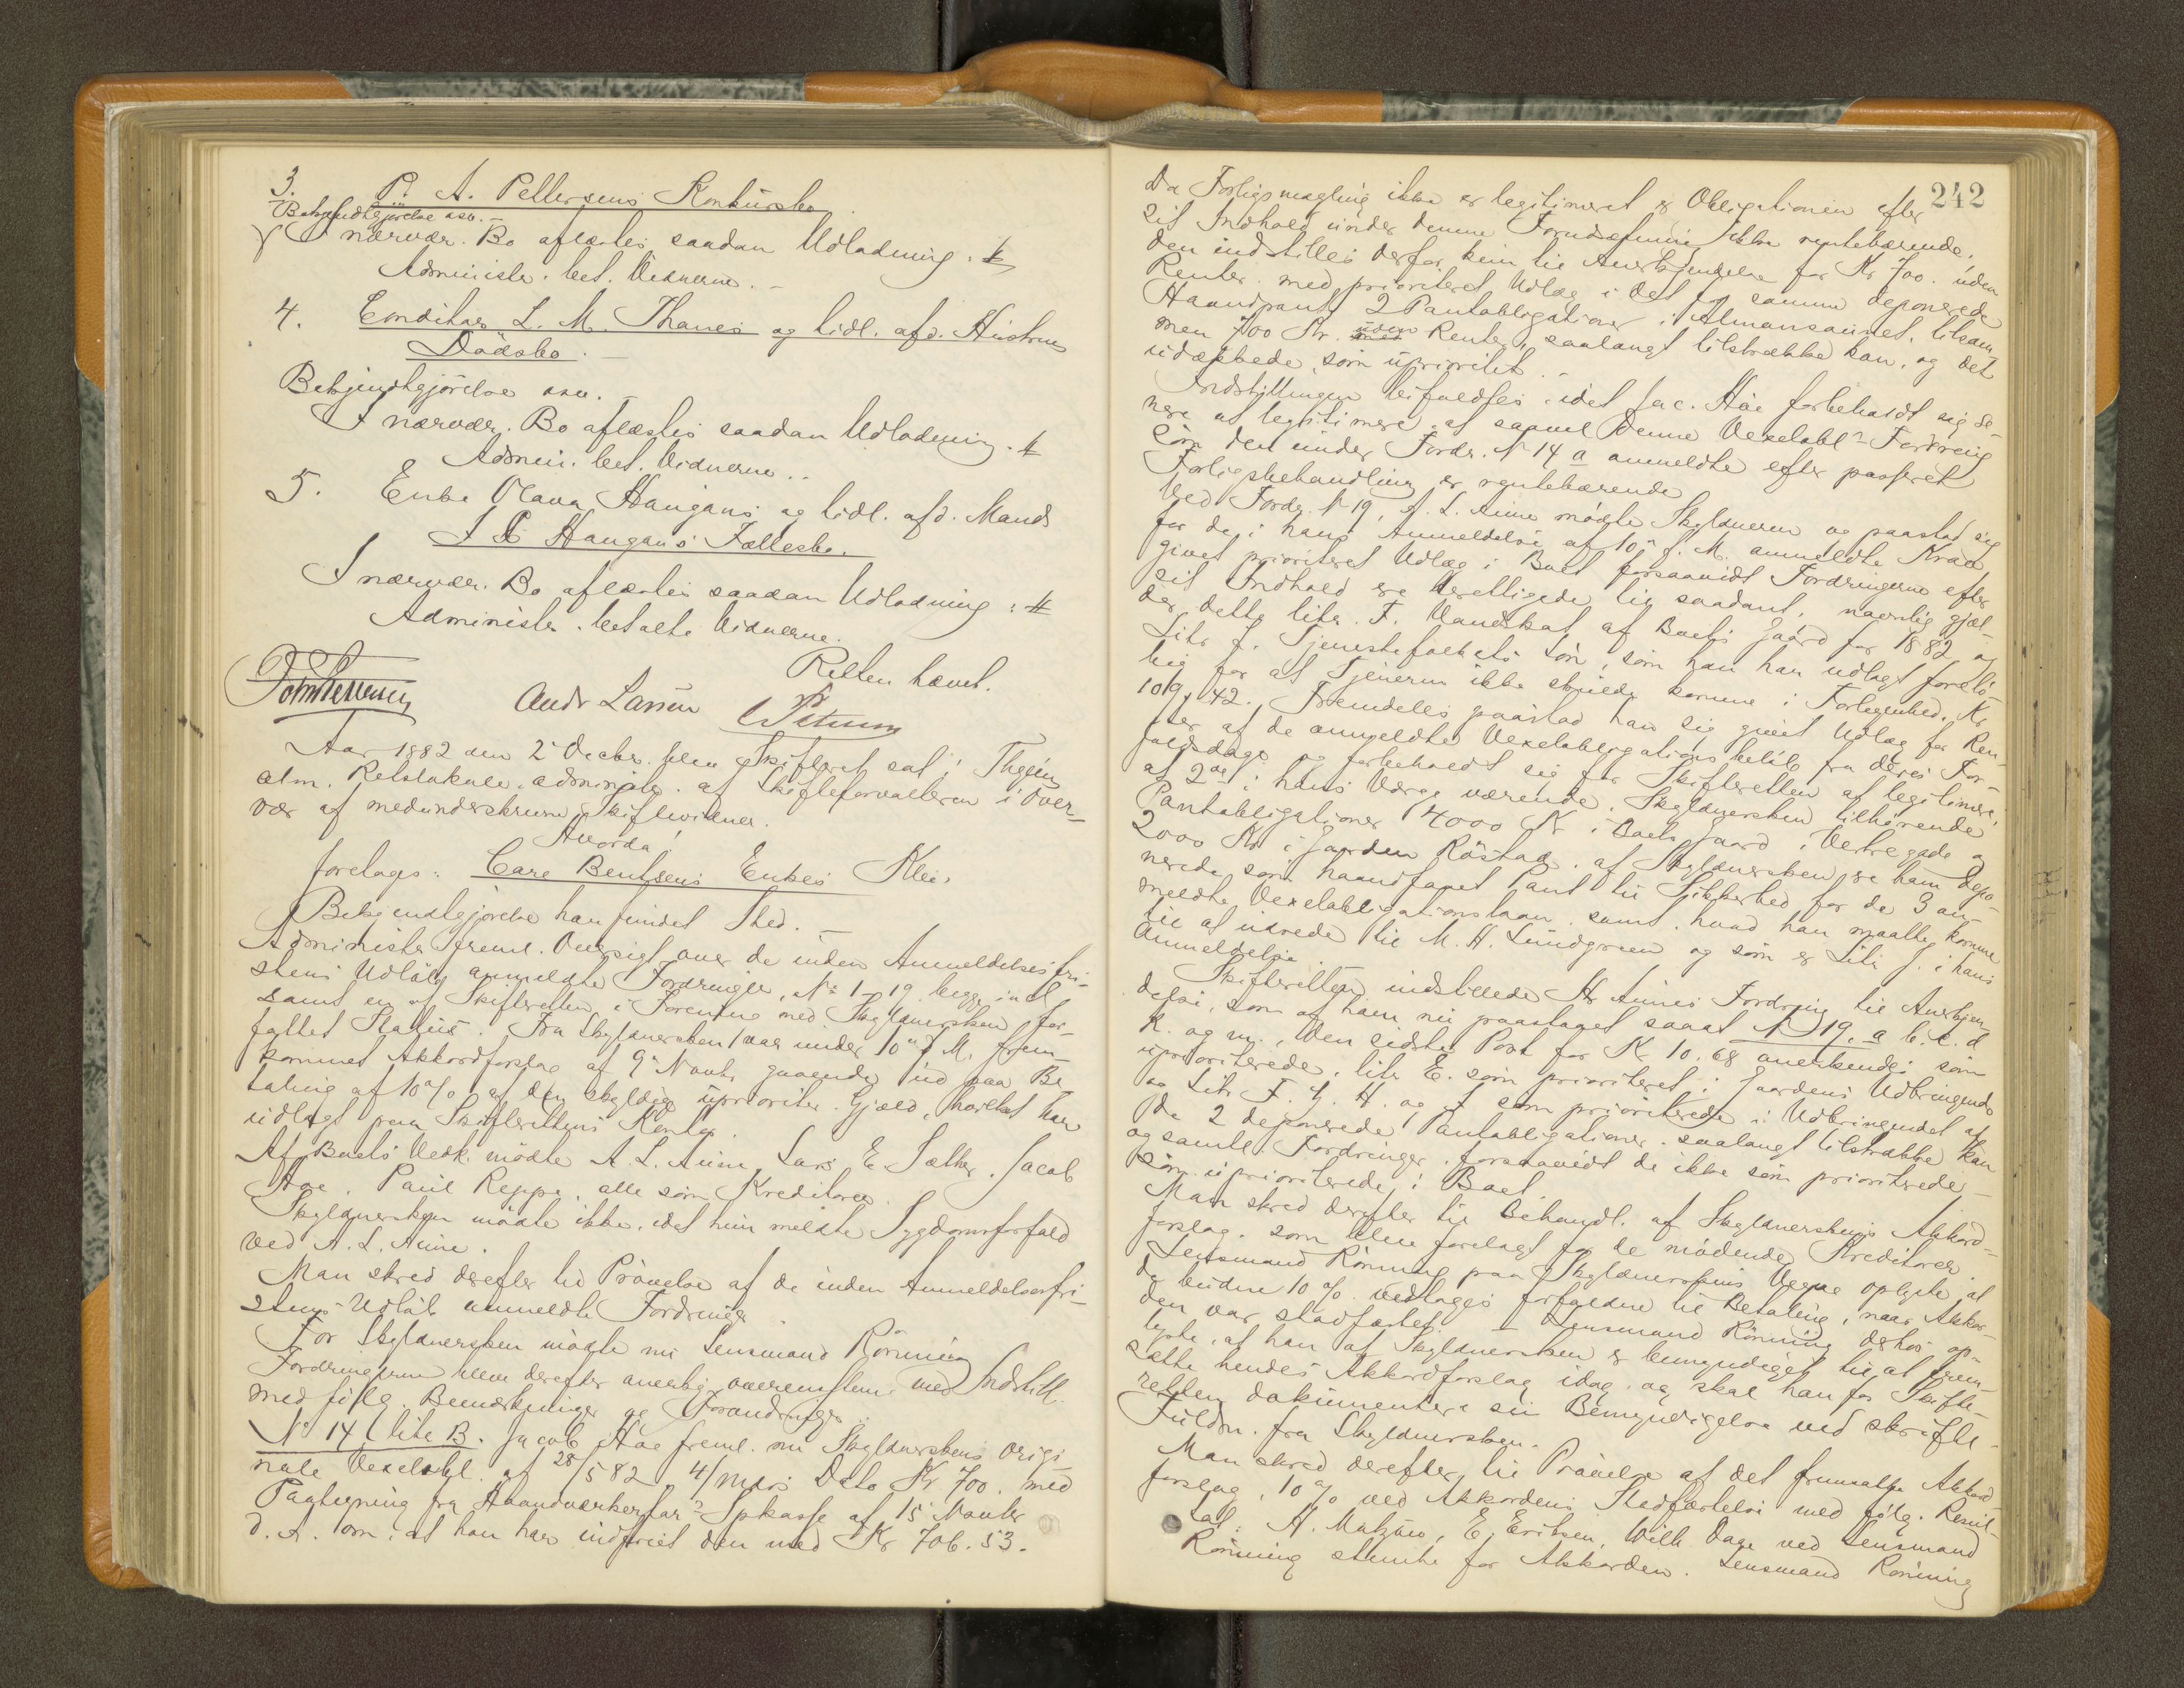 3. P. A. Pettersens Konkursbo
Bekjendtgjørelse osv. -
I nærvær. Bo aflæstes saadan Udlodning. #
Administr. bet. Vidnerne. -
4. Conditor L. M. Thanes og tidl. afd. Hustrus
Dødsbo. -
Bekjendtgjørelse osv. -
I nærvær. Bo aflæstes saadan Udlodning. #
Admin. bet. Vidnerne..
5. Enke Olava Haugans og tidl. afd. Mands
Haugans Fællesbo.
I nærvær. Bo aflæstes saadan Udlodning: #
Administr. betalte Vidnerne.
Retten hævet.
Andr Larsen
Aar 1882 den 2 Decbr. blev Skifteret sat i Thjems
alm. Retslokale, administr. af Skifteforvalteren i Over-
vær af medunderskrevne Skiftevidner.
Hvorda!
foretages: Care Bentsens Enkes
Bekjendtgjørelse har fundet Sted. -
Administr freml. Oversigt over de inden Anmeldelsesfri-
stens Udløb anmeldte Fordringer, No 1-19 begge incl.
samt en af Skifteretten i Forening med Skyldnersken for-
fattet Status. Fra Skyldnersken var under 10 d. M. frem-
kommet Akkordforslag af 9 Novbr. gaaende ud paa Be-
taling af 10% af den skyldige uprioriter. Gjæld, hvilket har
udlagt paa Skifterettens Kontor.
Af Boets Vedk. mødte A. L. Aune, Lars E. Sæther, Jacob
Aae, Paul Reppe, alle som Kreditorer.
Skyldnersken mødte ikke, idet hun meldte Sygdomsforfald
ved A. L. Aune.
Man skred derefter til Prøvelse af de inden Anmeldelsesfri-
stens Udløb anmeldte Fordringer.
For Skyldnersken mødte nu Lensmand Rønning
Fordringerne blev derefter anerkj. overensstem. med Indstill.
med følg. Bemærkninger og Forandringer.
No 14 litr B. Jacob Aae freml. nu Skyldnerskens origi-
nale Vexelobl. af 28/5 82, 4/mdrs Dato Kr 700. med
Paategning fra Haandværkerfor. Spkasse af 15 Novbr
d. A. om, at han har indfriet den med Kr 706.53.
242
Da Forligsmægling ikke er legitimeret er Obligationen efter
sit Indhold under denne Forudsætning ikke rentebærende,
den indstilles derfor kun til Anerkjendelse for Kr 700. uden
Renter med prioriteret Udlæg i det for samme deponerede
Haandpant, 2 Pantobligationer i Almansaunet, tilsam-
men 700 Kr. uden Renter, saalangt tilstrække kan, og det
udækkede som uprioritet. -
Indstillingen bifaldtes, idet Jac. Aae forbeholdt sig se-
nere at legitimere, at saavel denne Vexelobl. Fordring
som den under Fordr. No 14 a anmeldte efter passeret
Forligsbehandling er rentebærende
Ved Fordr. No 19, A. L. Aune mødte Skyldneren og paastod sig
for de i hans Anmeldelse af 10 d. M. anmeldte Krav
givet prioriteret Udlæg i Boet forsaavidt Fordringerne efter
sit Indhold ere berettigede til saadant, navnlig gjæl-
der dette litr. F. Vandskat af Boets Gaard for 1882 og
Litr J. Tjenestefolkets Løn, som han har udlagt forelø-
big for at Tjenerne ikke skulde komme i Forlegenhed, Kr
109,42. Fremdeles paastod han sig givet Udlæg for Ren-
ter af de anmeldte Vexelobligationsbeløb fra deres For-
faldsdage og forbeholdt sig for Skifteretten at legitimere,
at 2de i hans Værge værende, Skyldnersken tilhørende
Pantobligationer 4000 Kr i Boets Gaard i Vestregade og
2000 Kr i Gaarden Røstad, af Skyldnersken er ham depo-
nerede som haandfaaet Pant til Sikkerhed for de 3 an-
meldte Vexelobligationslaan samt hvad han maatte komme
til at udrede til M. H. Lundgreen og som er Litr J. i hans
Anmeldelse.
Skifteretten indstillede Hr Aunes Fordring til Anerkjen-
delse, som af ham nu paastaaet saaat No 19, a b. c. d
K. og m., den sidste Post for Kr 10.68 anerkjendes som
uprioriterede, litr E. som prioriteret i Gaardens Udbringende
og Litr F. G. H. og I som prioriterede i Udbringendet af
de 2 deponerede Pantobligationer, saalangt tilstrække kan
og samtl. Fordringer, forsaavidt de ikke som prioriterede -
som uprioriterede i Boet.
Man skred derefter til Behandl. af Skyldnerskens Akkord-
forslag, som blev forelagt for de mødende Kreditorer
Lensmand Rønning paa Skyldnerskens Vegne oplyste, at
de budne 10% vedtages forfaldne til Betaling, naar Akkor-
den var stadfæstet. - Lensmand Rønning derhos op-
lyste, at han af Skyldnersken er bemyndiget til at frem-
sætte hendes Akkordforslag idag, og skal han for Skifte-
retten dokumentere sin Bemyndigelse ved skriftl.
Fuldm. fra Skyldnersken.
Man skred derefter til Prøvelse af det fremsatte Akkord-
forslag, 10% ved Akkordens Stadfæstelse med følg. Resul-
tat: H. Matzow, E. Eriksen, Wilh. Dage ved Lensmand
Rønning stemte for Akkorden. Lensmand Rønning